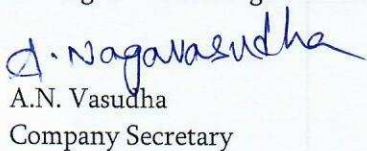 A. Nagavasudha
A.N. Vasudha
Company Secretary